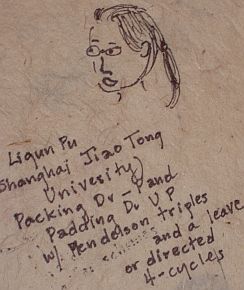 Liqun Pu
Shanghai Jiao Tong
Univesity)
Packing Dv - P and
Padding Dv U P
w/ Mendelson triples
and a leave
or directed
4-cycles